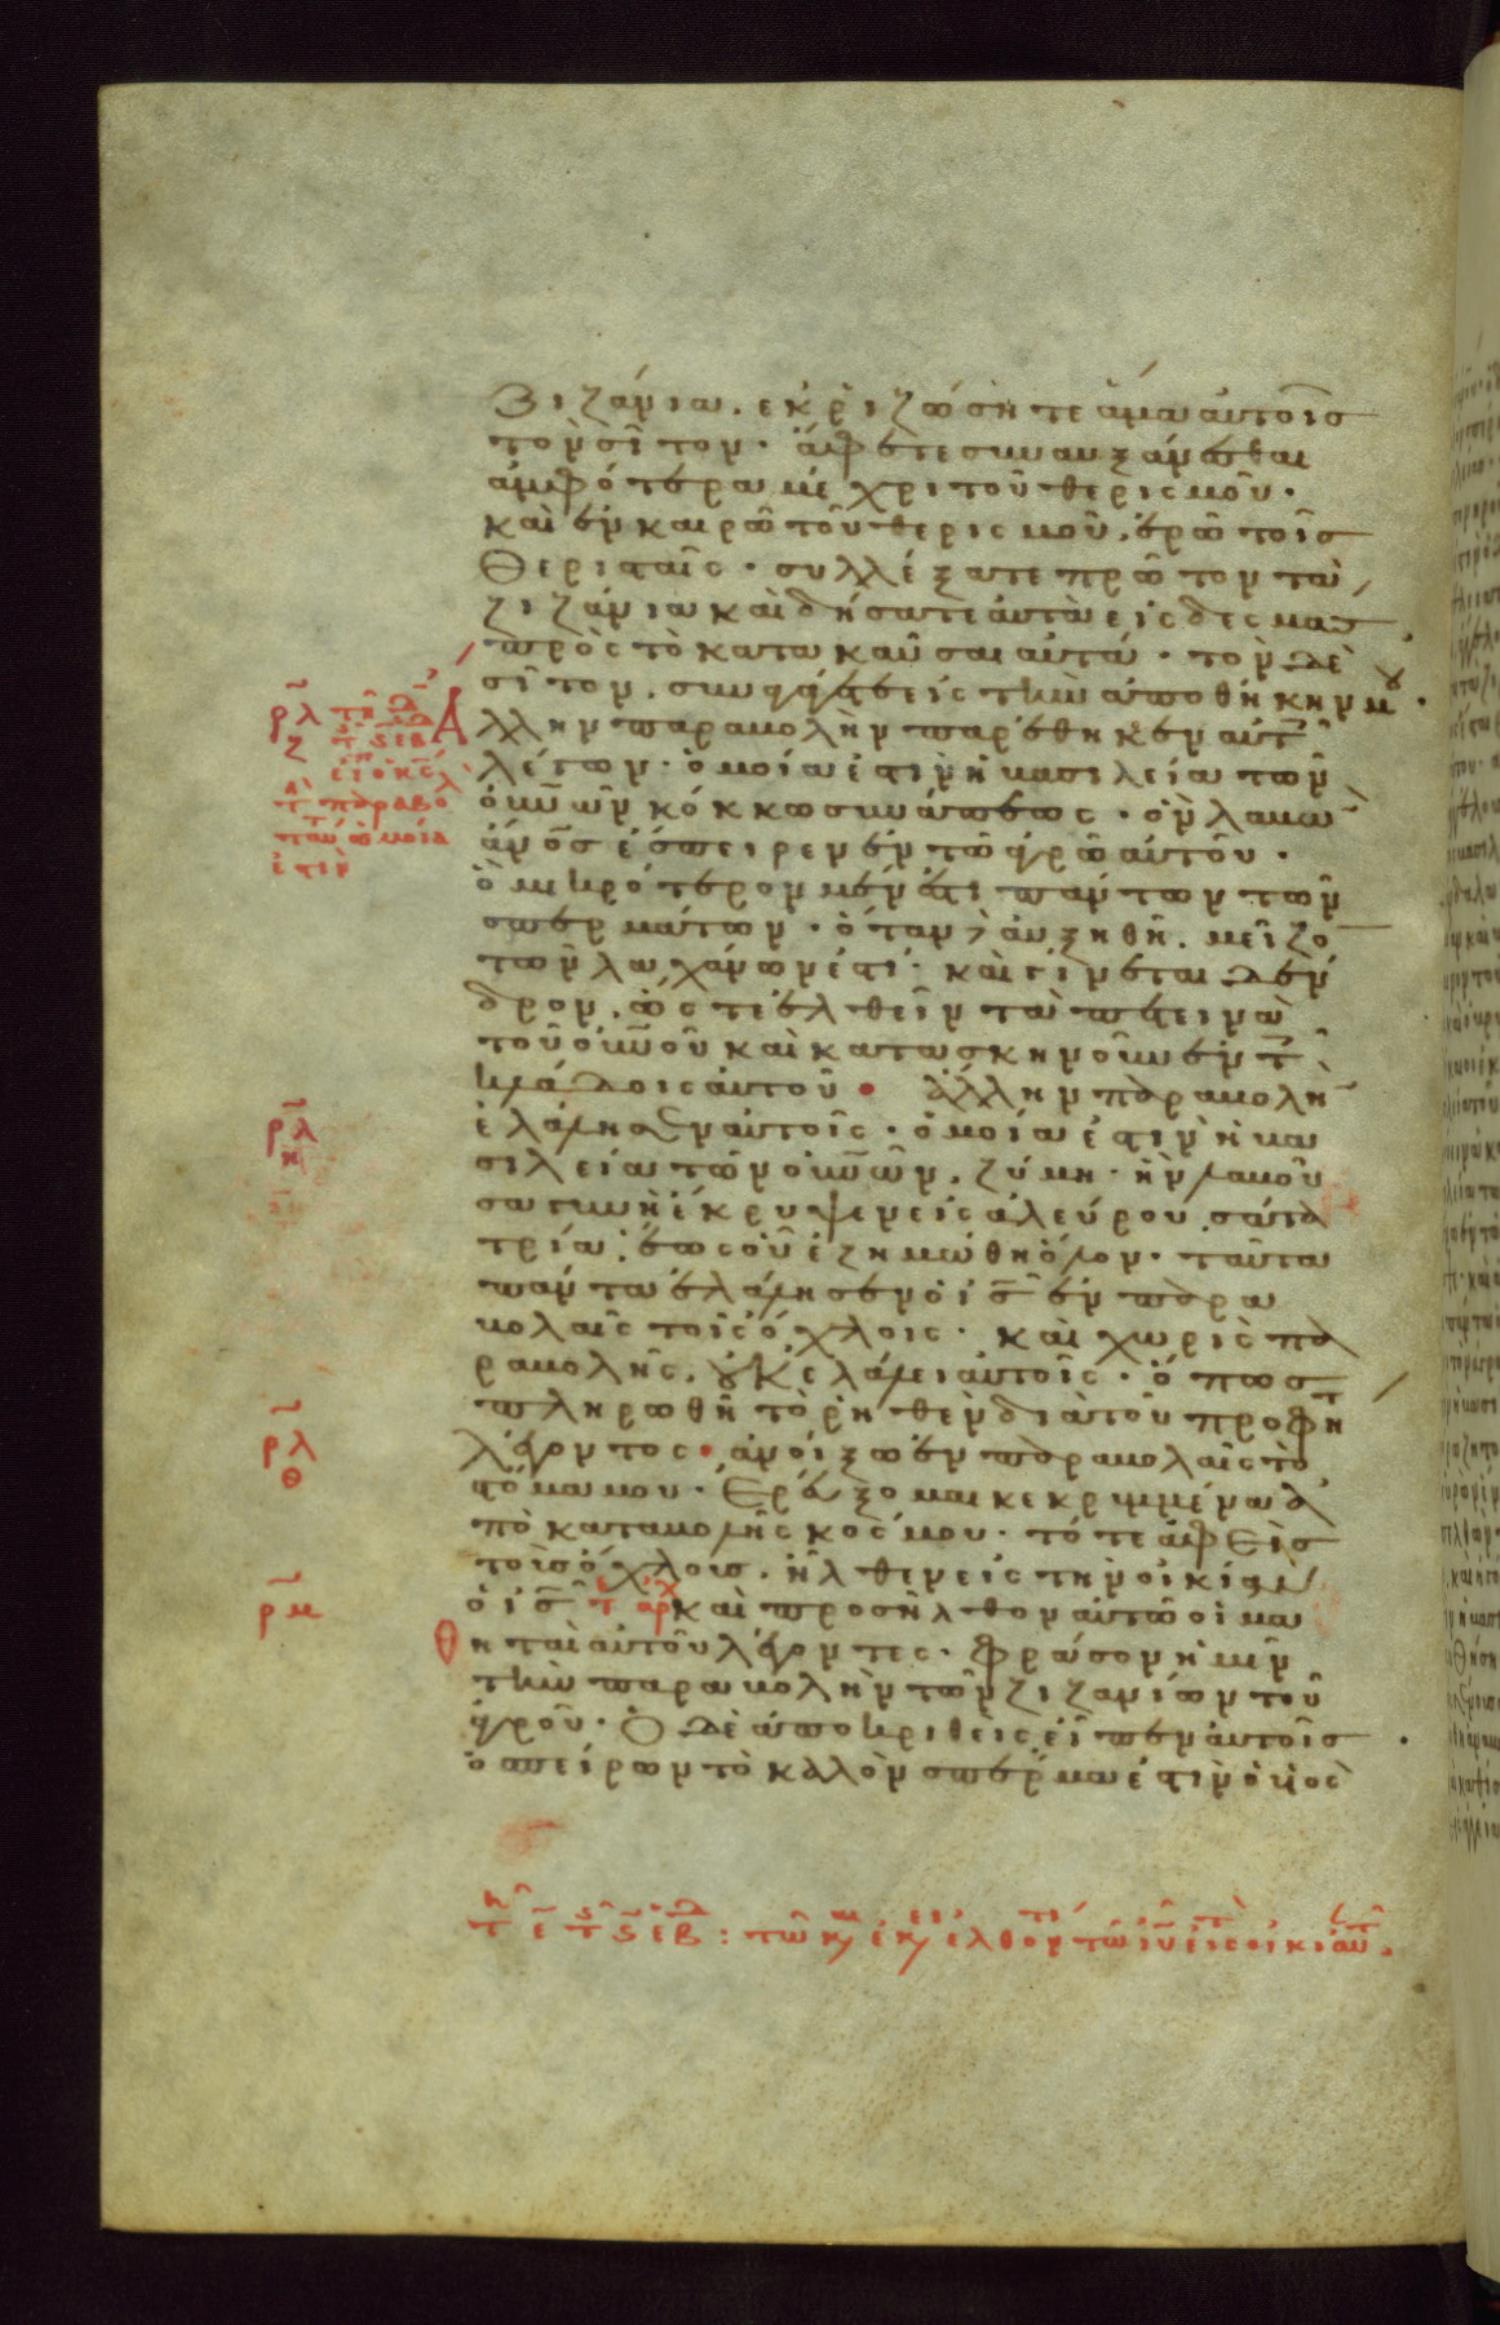 ζιζάνια. εκριζώσητε ἅμα αυτοῖσ
τὸν σῖτον· ἄφετε συναυξάνεσθαι
ἀμφότερα μέχρι τοῦ θερισμοῦ.
καὶ ἐν καιρῶ τοῦ θερισμοῦ. ἐρῶ τοῖσ
θερισταῖς· συλλέξατε πρῶτον τὰ
ζιζάνια καὶ δήσατε ἀυτὰ εἰς δεσμασ
πρὸς τὸ κατακαῦσαι αὐτά· τὸν δὲ
σῖτον. συναγάγετε εἰς τὴν ἀποθήκην μου.
Ἄλλην παραβολὴν παρέθηκεν αὐτοῖς
λέγων· ὁμοία ἐστὶν ἡ βασιλεία τῶν
οὐνῶν κόκκω σινάπεως· ὃν λαβὼν
ἄνος ἔσπειρεν ἐν τῶ ἀγρῶ ἀυτοῦ.
ὃ μικρότερον μέν ἐστι πάντων τῶν
σπερμάτων· ὅταν δὲ ἀυξηθῆ. μεῖζον
τῶν λαχάνων ἐστί· καὶ γίνεται δέν
δρον. ὥστε ἐλθεῖν τὰ πετεινὰ
τοῦ οὐνοῦ καὶ κατασκηνοῦν ἐν τοῖς
κλάδοις ἀυτοῦ· ἄλλην παραβολὴν
ἐλάλησεν αὐτοῖς· ὁμοία ἐστὶν ἡ βα
σιλεία τῶν οὐνῶν. ζύμη· ἣν λαβοῦ
σα γυνὴ ἔκρυψεν εἰς ἀλεύρου σάτα
τρία. ἕως οὗ ἐζημώθη ὅλον· ταῦτα
πάντα ἐλάλησεν ὁ ις ἐν παρα
βολαῖς τοῖς ὄχλοις· καὶ χωρὶς πα
ραβολῆς. οὐκ ελάλει ἀυτοῖς· ὅπωσ
πληρωθῆ τὸ ρηθὲν διὰ τοῦ προφητ
λέγοντος· ἀνοίξω ἐν παραβολαῖς τὸ
στόμα μου· Ἐρεύξομαι κεκρυμμένα ἀ
πὸ καταβολῆς κόσμου· τότε ἀφεὶσ
τοὺσ ὄχλουσ. ἦλθεν εἰς τὴν οἰκίαν
ὁ ις αρχ καὶ προσῆλθον αὐτῶ οἱ μα
θηταὶ αὐτοῦ λέγοντες· φράσον ἡμῖν
τὴν παραβολὴν τῶν ζιζανίων τοῦ
ἀγροῦ· Ὁ δὲ ἀποκριθεὶς εἶπεν ἀυτοῖσ
ὁ σπείρων τὸ καλὸν σπέρμα ἐστὶν ὁ υἱὸς
ρλ
ζ
ρλ
η
ρλ
θ
ρμ